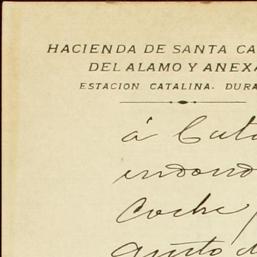 HACIENDA DE SANTA CA
DEL ALAMO Y ANEXA
ESTACION CATALINA. DURA
á Cata
endond
Coche
gusto d